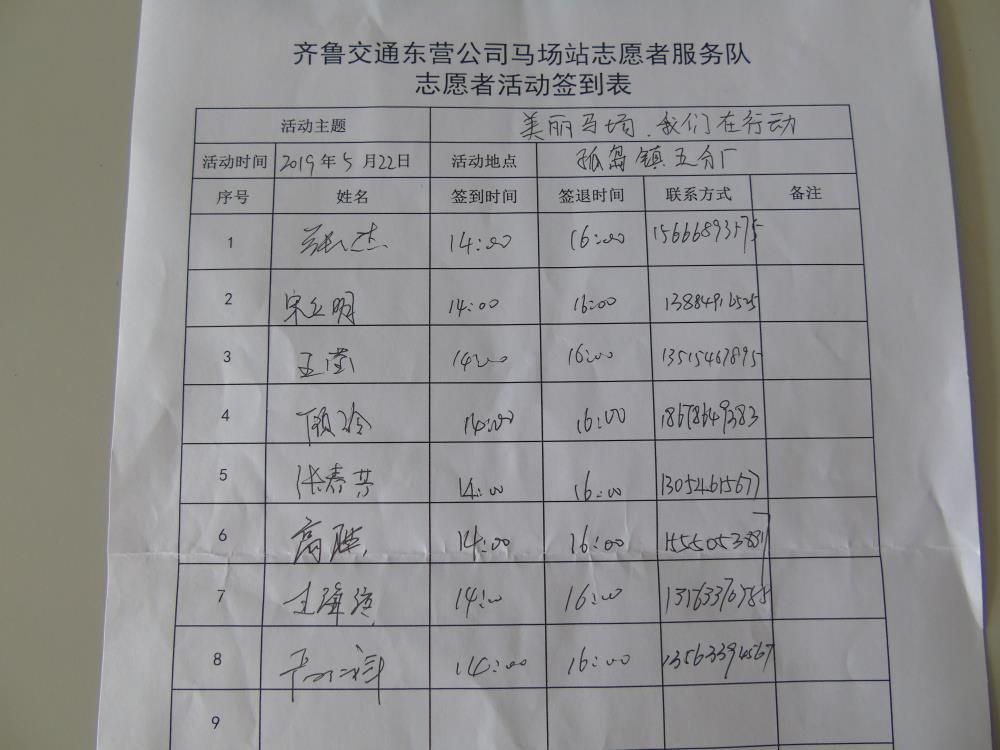 齐鲁交通东营公司马场站志愿者服务队
志愿者活动签到表
活动主题 美丽马场、我们在行动
活动时间 2019年5月22日 活动地点 孤岛镇五分厂
序号 姓名 签到时间 签退时间 联系方式 备注
1 张杰 14:00 16:00
2 14:00 16:00
3 王莹 14:00 16:00 13515467895
4 顾玲 14:00 16:00 18678649283
5 张春芸 14:00 16:00 13054615677
6 14:00 16:00
7 14:00 16:00
8 14:00 16:00 13563394567
9